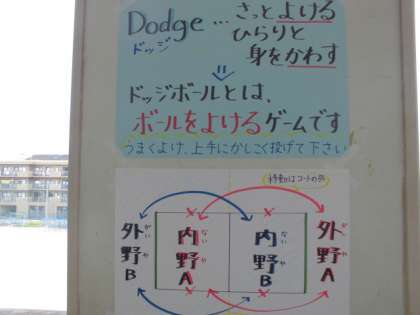 Dodge…さっとよける
ドッジ ひらりと
身をかわす
ドッジボールとは、
ボールをよけるゲームです
うまくよけ、上手にかしこく投げて下さい
移動はコートの外
外野B
がい や
内野A
ない や
内野B
ない や
外野A
がい や